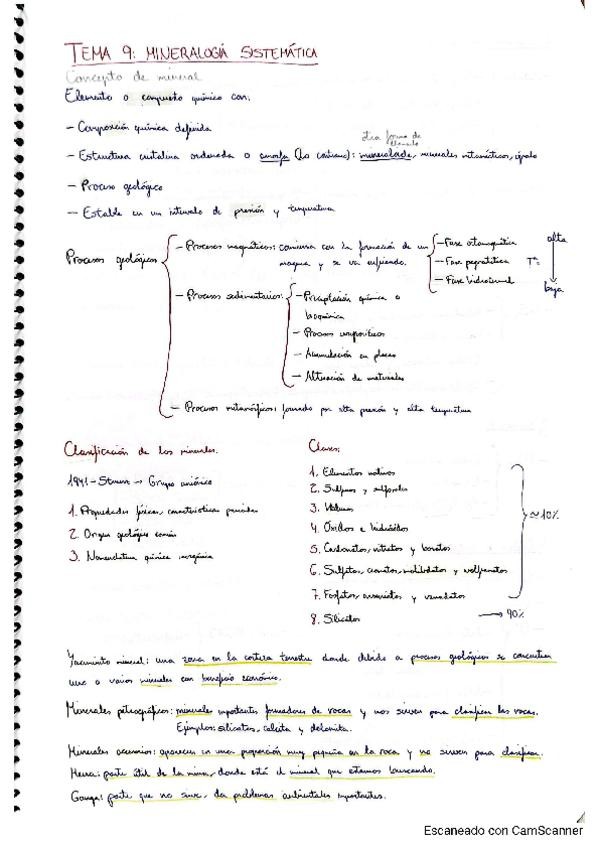 TEMA 9: MINERALOGÍA SISTEMÁTICA
Concepto de mineral
Elemento o compuesto químico con:
- Composición química definida
otra forma de
- Estructura cristalina ordenada o amorfa (lo contrario): mineraloide, minerales metamícticos, ópalo
- Proceso geológico
- Estable en un intervalo de presión y temperatura
Procesos geológicos
- Procesos magmáticos: comienza con la formación de un
magma y se va enfriando.
- Fase ortomagmática
- Fase pegmatítica
- Fase hidrotermal
alta
Tª:
baja
- Procesos sedimentarios:
- Precipitación química o
bioquímica
- Procesos evaporíticos
- Acumulación en placeres
- Alteración de materiales
- Procesos metamórficos: formado por alta presión y alta temperatura
Clasificación de los minerales.
1941 - Strunz → Grupo aniónico
1. Propiedades físicas, características parecidas
2. Origen geológico común
3. Nomenclatura química inorgánica
Clases:
1. Elementos nativos
2. Sulfuros y sulfosales
3. Haluros
4. Óxidos e hidróxidos
5. Carbonatos, nitratos y boratos
6. Sulfatos, cromatos, molibdatos y wolframatos
7. Fosfatos, arseniatos y vanadatos
≈10%
8. Silicatos → 90%
Yacimiento mineral: una zona en la corteza terrestre donde debido a procesos geológicos se concentran
uno o varios minerales con beneficio económico.
Minerales petrográficos: minerales importantes formadores de rocas y nos sirven para clasificar las rocas.
Ejemplos: silicatos, calcita y dolomita.
Minerales accesorios: aparecen en una proporción muy pequeña en la roca y no sirven para clasificar.
Mena: parte útil de la mina, donde está el mineral que estamos buscando.
Ganga: parte que no sirve, da problemas ambientales importantes.
Escaneado con CamScanner